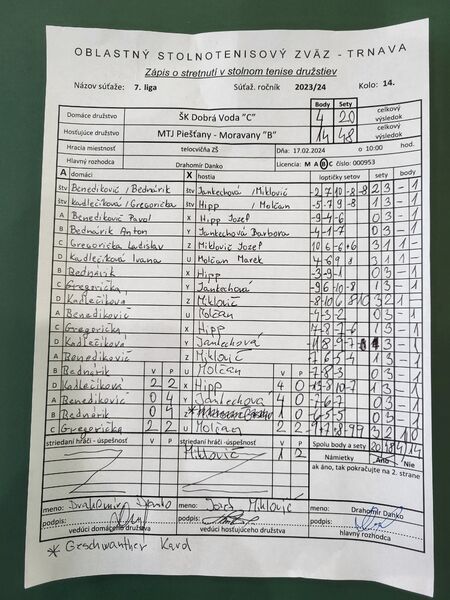 OBLASTNÝ STOLNOTENISOVÝ ZVÄZ - TRNAVA
Zápis o stretnutí v stolnom tenise družstiev
Názov súťaže: 7. liga Súťaž. ročník 2023/24 Kolo: 14.
Body Sety
Domáce družstvo ŠK Dobrá Voda "C" 4 20 celkový výsledok
Hosťujúce družstvo MTJ Piešťany - Moravany "B" 14 48 celkový výsledok
Hracia miestnosť telocvičňa ZŠ Dňa: 17.02.2024 o 10:00 hod.
Hlavný rozhodca Drahomír Danko Licencia: M A B C číslo: 000953
A domáci X hostia loptičky setov sety body
štv Benedikovič/Bednárik štv Jantechová/Miklovič -2 7 10 -8 -8 2 3 - 1
štv Kadlečíková/Gregorička štv Hipp/Molčan -5 -7 9 -8 1 3 - 1
A Benedikovič Pavol X Hipp Jozef -9 -4 -6 0 3 - 1
B Bednárik Anton Y Jantechová Barbora -4 -1 -7 0 3 - 1
C Gregorička Ladislav Z Miklovič Jozef 3 1 1 -
D Kadlečíková Ivana U Molčan Marek 3 1 1 -
B Bednárik X Hipp -3 -9 -1 0 3 - 1
C Gregorička Y Jantechová -9 6 -10 -8 1 3 - 1
D Kadlečíková Z Miklovič -8 10 6 -8 10 3 2 1 -
A Benedikovič U Molčan -4 -3 -2 0 3 - 1
C Gregorička X Hipp 1 3 - 1
D Kadlečíková Y Jantechová 1 3 - 1
A Benedikovič Z Miklovič -7 6 -5 -4 1 3 - 1
B Bednárik V P U Molčan V P -7 -8 -3 0 3 - 1
D Kadlečíková 2 2 X Hipp 4 0 1 3 - 1
A Benedikovič 0 4 Y Jantechová 4 0 -7 -6 -7 0 3 - 1
B Bednárik 0 4 Z 1 0 -6 -5 -5 0 3 - 1
C Gregorička 2 2 U Molčan 2 2 3 2 1 0
striedaní hráči - úspešnosť V P striedaní hráči - úspešnosť V P Spolu body a sety 20 48 4 14
Miklovič 1 2 Námietky Áno Nie
ak áno, tak pokračujte na 2. strane
meno: Drahomír Danko meno: Jozef Miklovič meno: Drahomír Danko
podpis: podpis: podpis:
vedúci domáceho družstva vedúci hosťujúceho družstva hlavný rozhodca
* Geschwandtner Karol